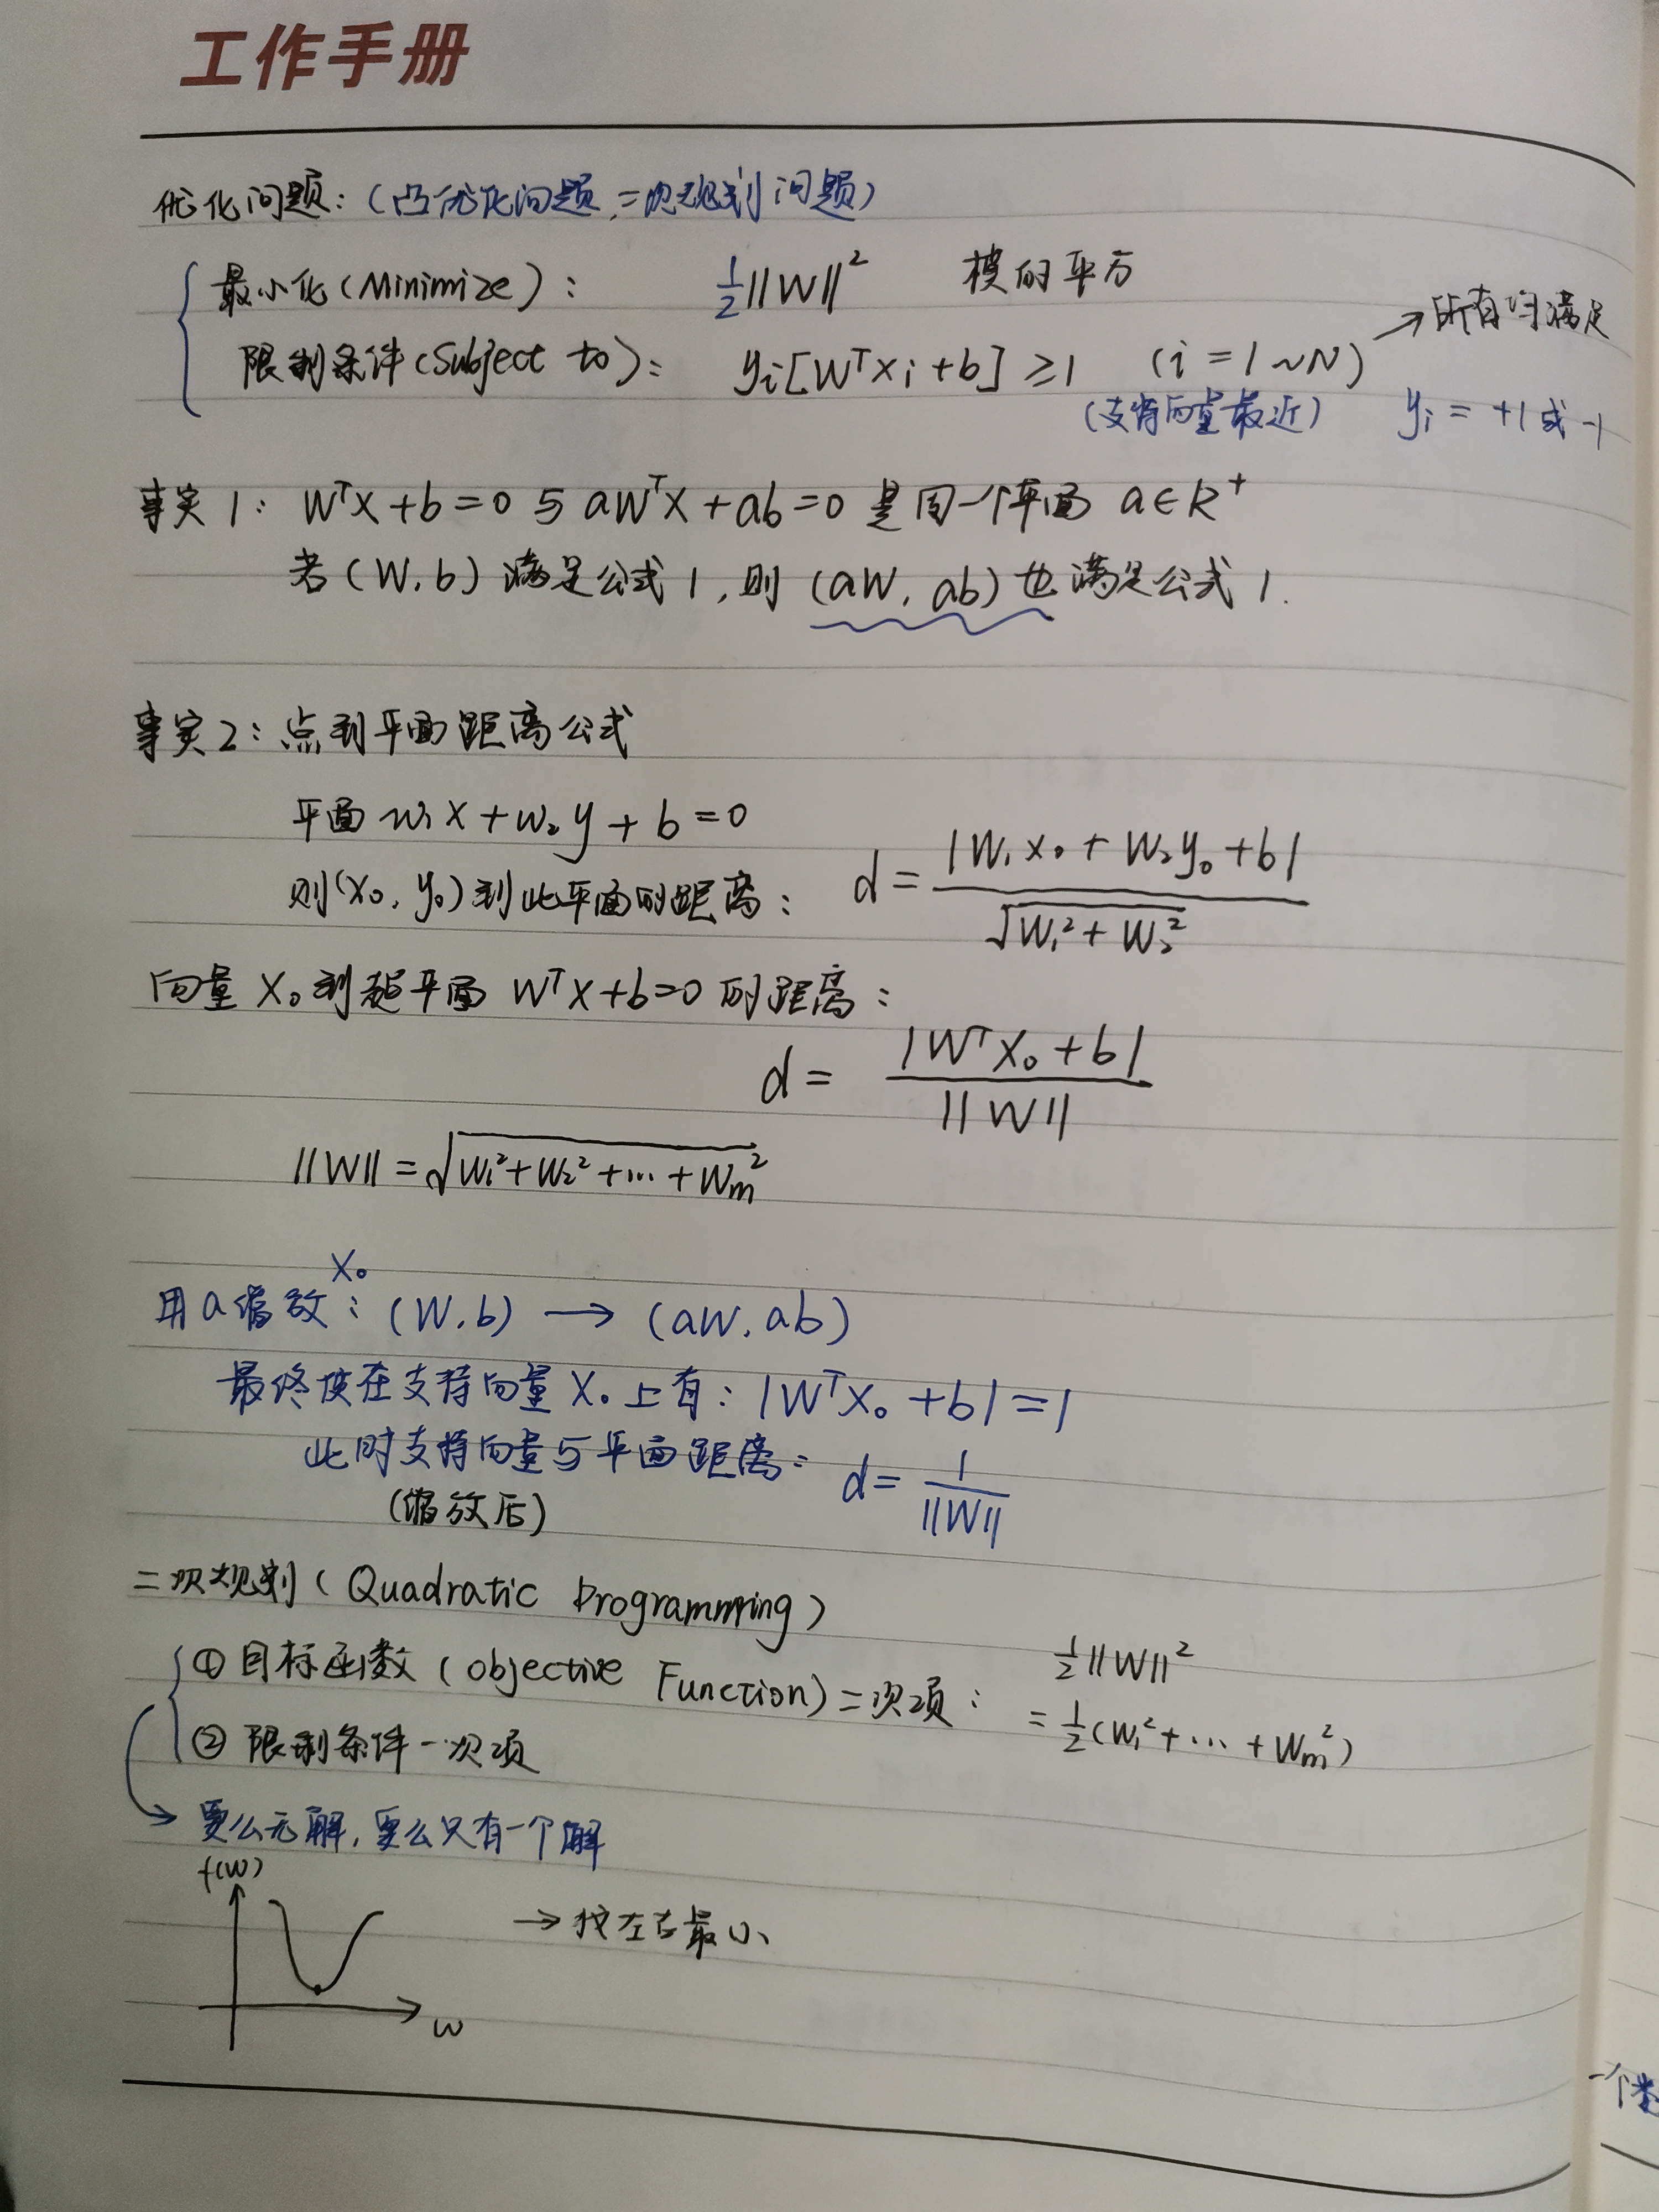 工作手册
优化问题:(凸优化问题,二次规划问题)
最小化(Minimize): ½||W||² 模的平方
限制条件(Subject to): yᵢ[WᵀXᵢ+b]≥1 (i=1~N) →所有均满足
(支持向量最近) yᵢ=+1或-1
事实1: WᵀX+b=0与aWᵀX+ab=0是同一个平面 a∈R⁺
若(W,b)满足公式1,则(aW,ab)也满足公式1.
事实2:点到平面距离公式
平面w₁x+w₂y+b=0
则(x₀,y₀)到此平面的距离: d=|W₁x₀+W₂y₀+b|/√(W₁²+W₂²)
向量X₀到超平面WᵀX+b=0的距离:
d=|WᵀX₀+b|/||W||
||W||=√(W₁²+W₂²+…+Wm²)
X₀
用a缩放:(W,b)→(aW,ab)
最终使在支持向量X₀上有:|WᵀX₀+b|=1
此时支持向量与平面距离: d=1/||W||
(缩放后)
二次规划(Quadratic Programming)
①目标函数(Objective Function)二次项: ½||W||²
=½(W₁²+…+Wm²)
②限制条件一次项
→要么无解,要么只有一个解
f(w)
→找左右最小
w
一个